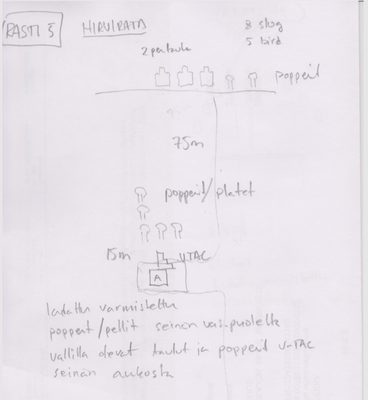 RASTI 5 HIRVIRATA
8 slug
5 bird
2 per taulu
popperit
75m
popperit/platet
15m
V-TAC
A
ladattu varmistettu
popperit/pellit seinän vas. puolelta
vallilla olevat taulut ja popperit V-TAC
seinän aukosta